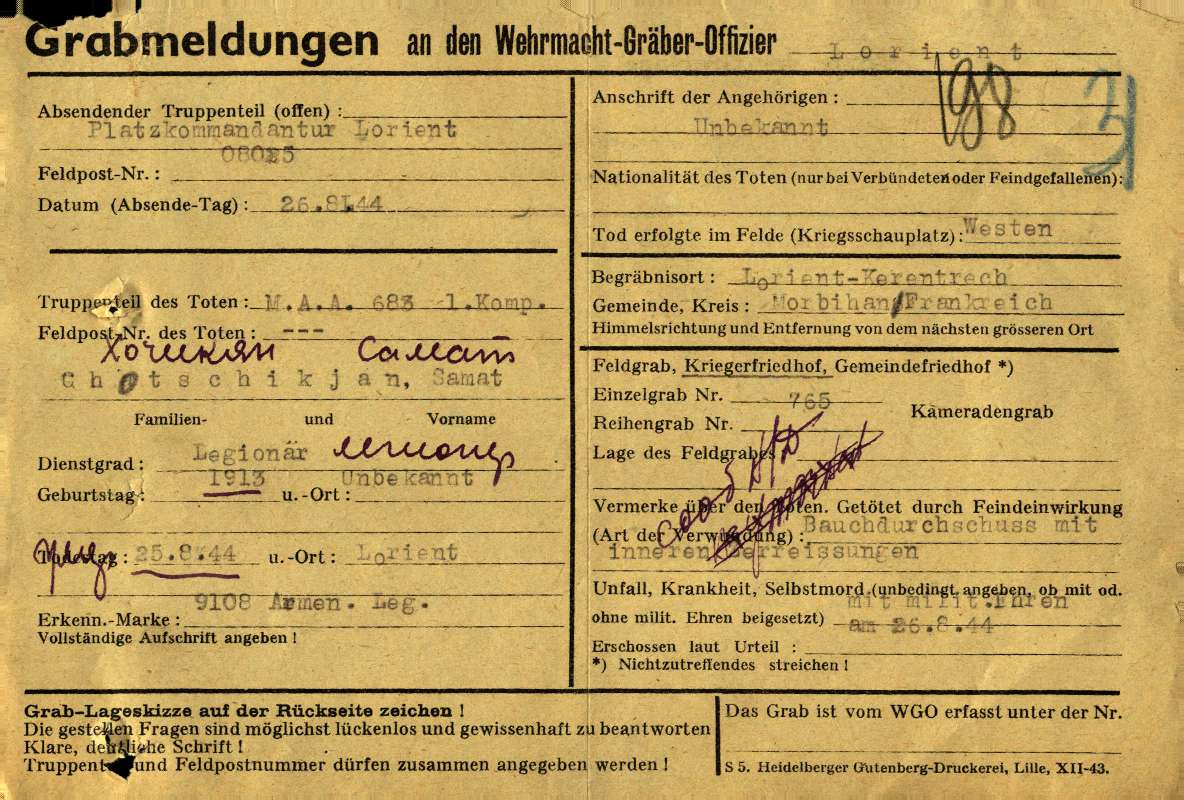 Grabmeldungen an den Wehrmacht-Gräber-Offizier Lorient
Absendender Truppenteil (offen) :
Platzkommandantur Lorient
08025
Feldpost-Nr. :
Datum (Absende-Tag) : 26.8.44
Truppenteil des Toten : M.A.A. 683 1.Komp.
Feldpost-Nr. des Toten : ---
Хочикян Самат
Chotschikjan, Samat
Familien- und Vorname
Dienstgrad : Legionär легионер
Geburtstag : 1913 u.-Ort : Unbekannt
Todestag : 25.8.44 u.-Ort : Lorient
9108 Armen. Leg.
Erkenn.-Marke :
Vollständige Aufschrift angeben !
198
Anschrift der Angehörigen :
Unbekannt
Nationalität des Toten (nur bei Verbündeten oder Feindgefallenen) :
Tod erfolgte im Felde (Kriegsschauplatz) : Westen
Begräbnisort : Lorient-Kerentrech
Gemeinde, Kreis : Morbihan/Frankreich
Himmelsrichtung und Entfernung von dem nächsten grösseren Ort
Feldgrab, Kriegerfriedhof, Gemeindefriedhof *)
Einzelgrab Nr. 765
Kameradengrab
Reihengrab Nr.
Lage des Feldgrabes
Vermerke über den Toten. Getötet durch Feindeinwirkung
(Art der Verwundung) : Bauchdurchschuss mit
inneren Zerreissungen
Unfall, Krankheit, Selbstmord (unbedingt angeben, ob mit od.
mit milit. Ehren
ohne milit. Ehren beigesetzt) am 26.8.44
Erschossen laut Urteil :
*) Nichtzutreffendes streichen !
Grab-Lageskizze auf der Rückseite zeichen !
Die gestellen Fragen sind möglichst lückenlos und gewissenhaft zu beantworten
Klare, deutliche Schrift !
Truppenteil und Feldpostnummer dürfen zusammen angegeben werden !
Das Grab ist vom WGO erfasst unter der Nr.
S 5. Heidelberger Gutenberg-Druckerei, Lille, XII-43.